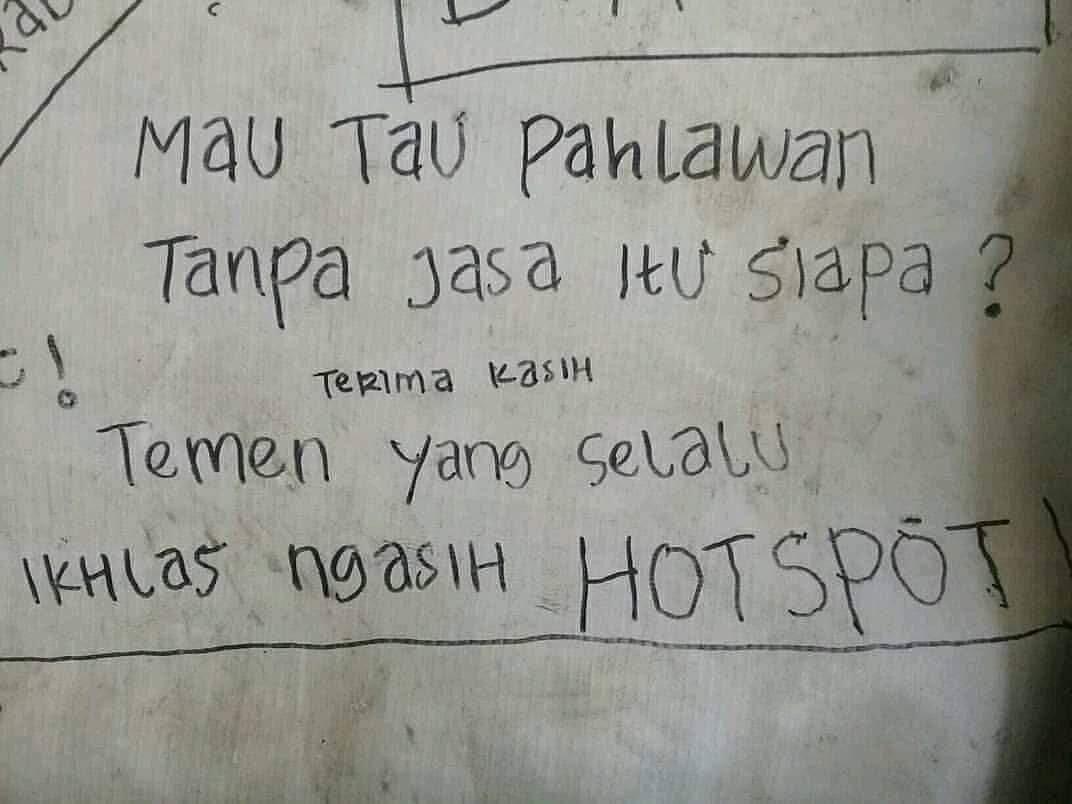 Mau Tau Pahlawan
Tanpa Jasa Itu Siapa ?
!
Terima Kasih
Temen yang selalu
Ikhlas ngasih HOTSPOT